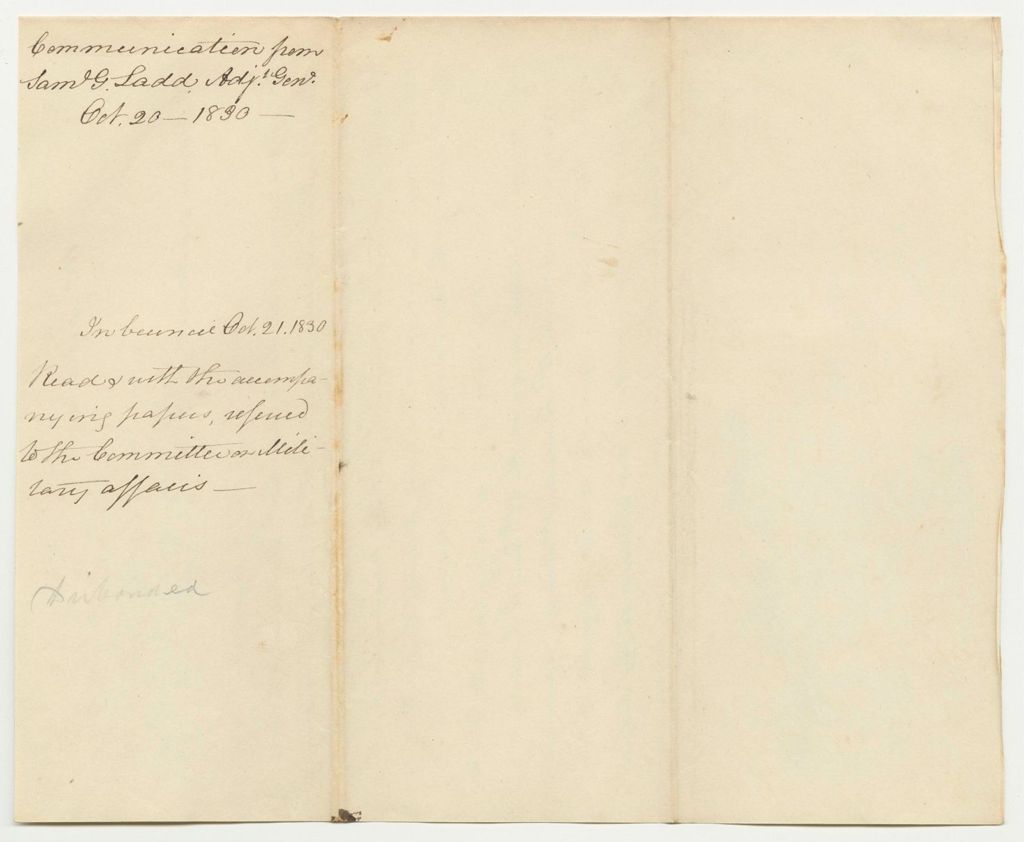 Communication from
Saml G. Ladd, Adjt. Genl.
Oct. 20 — 1830 —
In Council Oct. 21. 1830
Read & with the accompa-
nying papers, referred
to the Committee on Mili-
tary affairs —
Disbanded